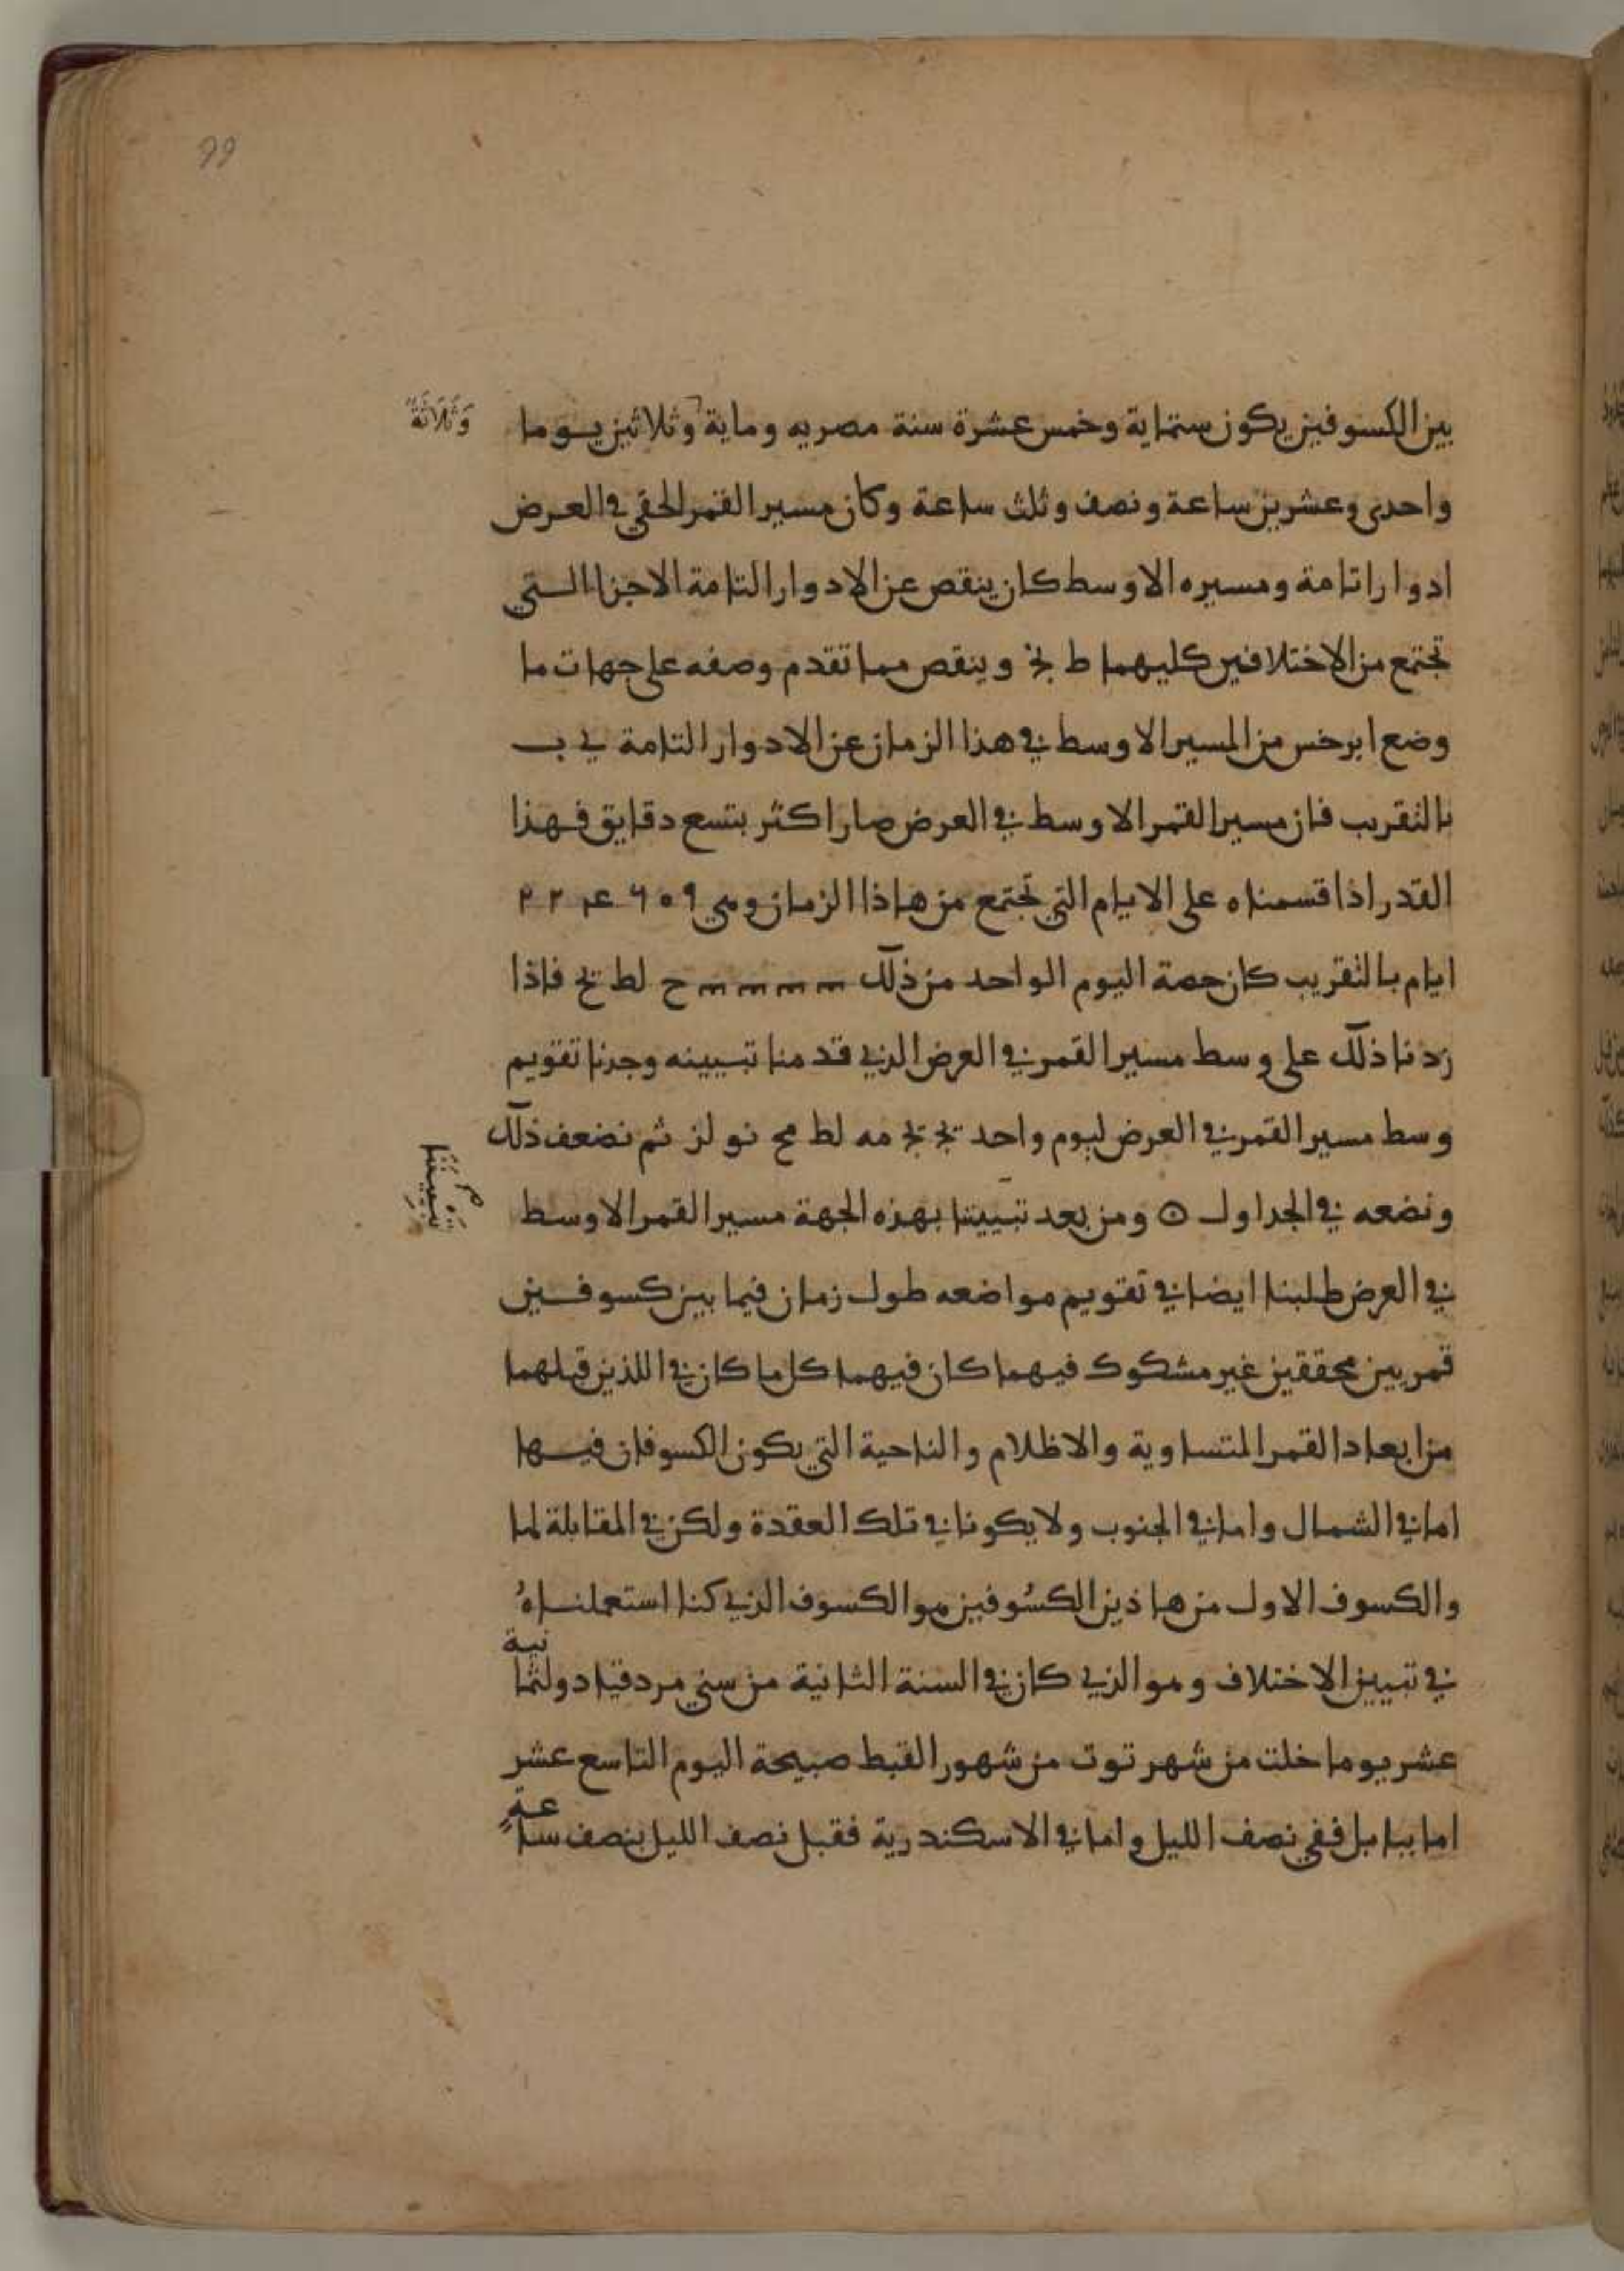 99
بين الكسوفين يكون ستماية وخمس عشرة سنة مصريه وماية وثلاثين يوما
وَثَلَاثَةً
واحدى وعشرين ساعة ونصف وثلث ساعة وكان مسير القمر الحقي في العرض
ادوارا تامة ومسيره الاوسط كان ينقص عن الادوار التامة الاجزا التي
تجتمع من الاختلافين كليهما ط نج وينقص مما تقدم وصفه على جهات ما
وضع ابرخس من المسير الاوسط في هذا الزمان عن الادوار التامة ي ب
بالتقريب فان مسير القمر الاوسط في العرض صار اكثر بتسع دقايق فهذا
القدر اذا قسمناه على الايام التي تجتمع من هاذا الزمان وهي
ايام بالتقريب كان حصة اليوم الواحد من ذلك ح لط يح فاذا
زدنا ذلك على وسط مسير القمر في العرض الذي قدمنا تبيينه وجدنا تقويم
وسط مسير القمر في العرض ليوم واحد يج يج مه لط مح نو لز ثم نضعف ذلك
ونضعه في الجداول ⊙ ومن بعد تبييننا بهذه الجهة مسير القمر الاوسط
تبييننا
في العرض طلبنا ايضا في تقويم مواضعه طول زمان فيما بين كسوفين
قمريين محققين غير مشكوك فيهما كان فيهما كل ما كان في اللذين قبلهما
من ابعاد القمر المتساوية والاظلام والناحية التي يكون الكسوفان فيها
اما في الشمال واما في الجنوب ولا يكونا في تلك العقدة ولكن في المقابلة لها
والكسوف الاول من هاذين الكسُوفين هو الكسوف الذي كنا استعملناهُ
في تبيين الاختلاف وهو الذي كان في السنة الثانية من سني مردقيادو لثمانية
عشر يوما خلت من شهر توت من شهور القبط صبيحة اليوم التاسع عشر
اما ببابل ففي نصف الليل واما في الاسكندرية فقبل نصف الليل بنصف ساعةٍ